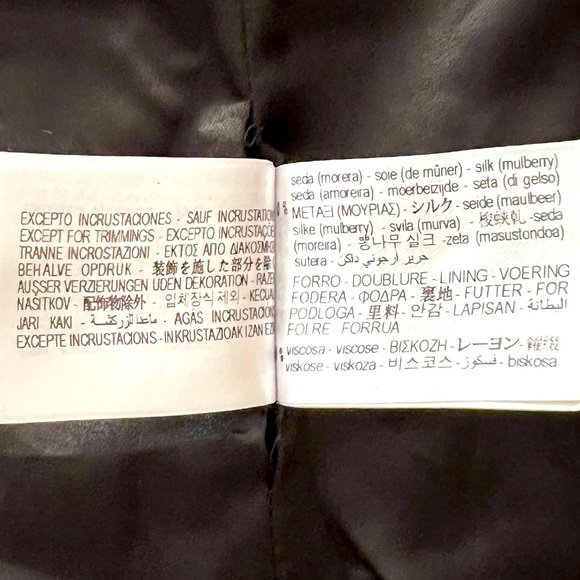 EXCEPTO INCRUSTACIONES - SAUF INCRUSTATION
EXCEPT FOR TRIMMINGS - EXCEPTO INCRUSTAÇÕE
TRANNE INCROSTAZIONI - ΕΚΤΟΣ ΑΠΟ ΔΙΑΚΟΣΜΗ
BEHALVE OPDRUK - 装飾を施した部分を除
AUSSER VERZIERUNGEN UDEN DEKORATION - RAZE
NASITKOV - 配飾物除外 - 입체장식 제외 - KECUAL
JARI KAKI - - AGAS INCRUSTACION
EXCEPTE INCRUSTACIONS - INKRUSTAZIOAK IZAN EZ
seda (morera) - soie (de mûrier) - silk (mulberry)
seda (amoreira) - moerbeizijde - seta (di gelso)
% ΜΕΤΑΞΙ (ΜΟΥΡΙΑΣ) - シルク - seide (maulbeer)
silke (mulberry) - svila (murva) - -seda
(moreira) - 뽕나무 실크 -zeta (masustondoa)
sutera - حرير أرجواني داكن
FORRO - DOUBLURE - LINING - VOERING
FODERA - ΦΟΔΡΑ - 裏地 - FUTTER - FOR
PODLOGA - 里料 - 안감 - LAPISAN - البطانة
FOLRE - FORRUA
viscosa - viscose - ΒΙΣΚΟΖΗ - レーヨン -
viskose - viskoza - 비스코스 - فسكوز - biskosa